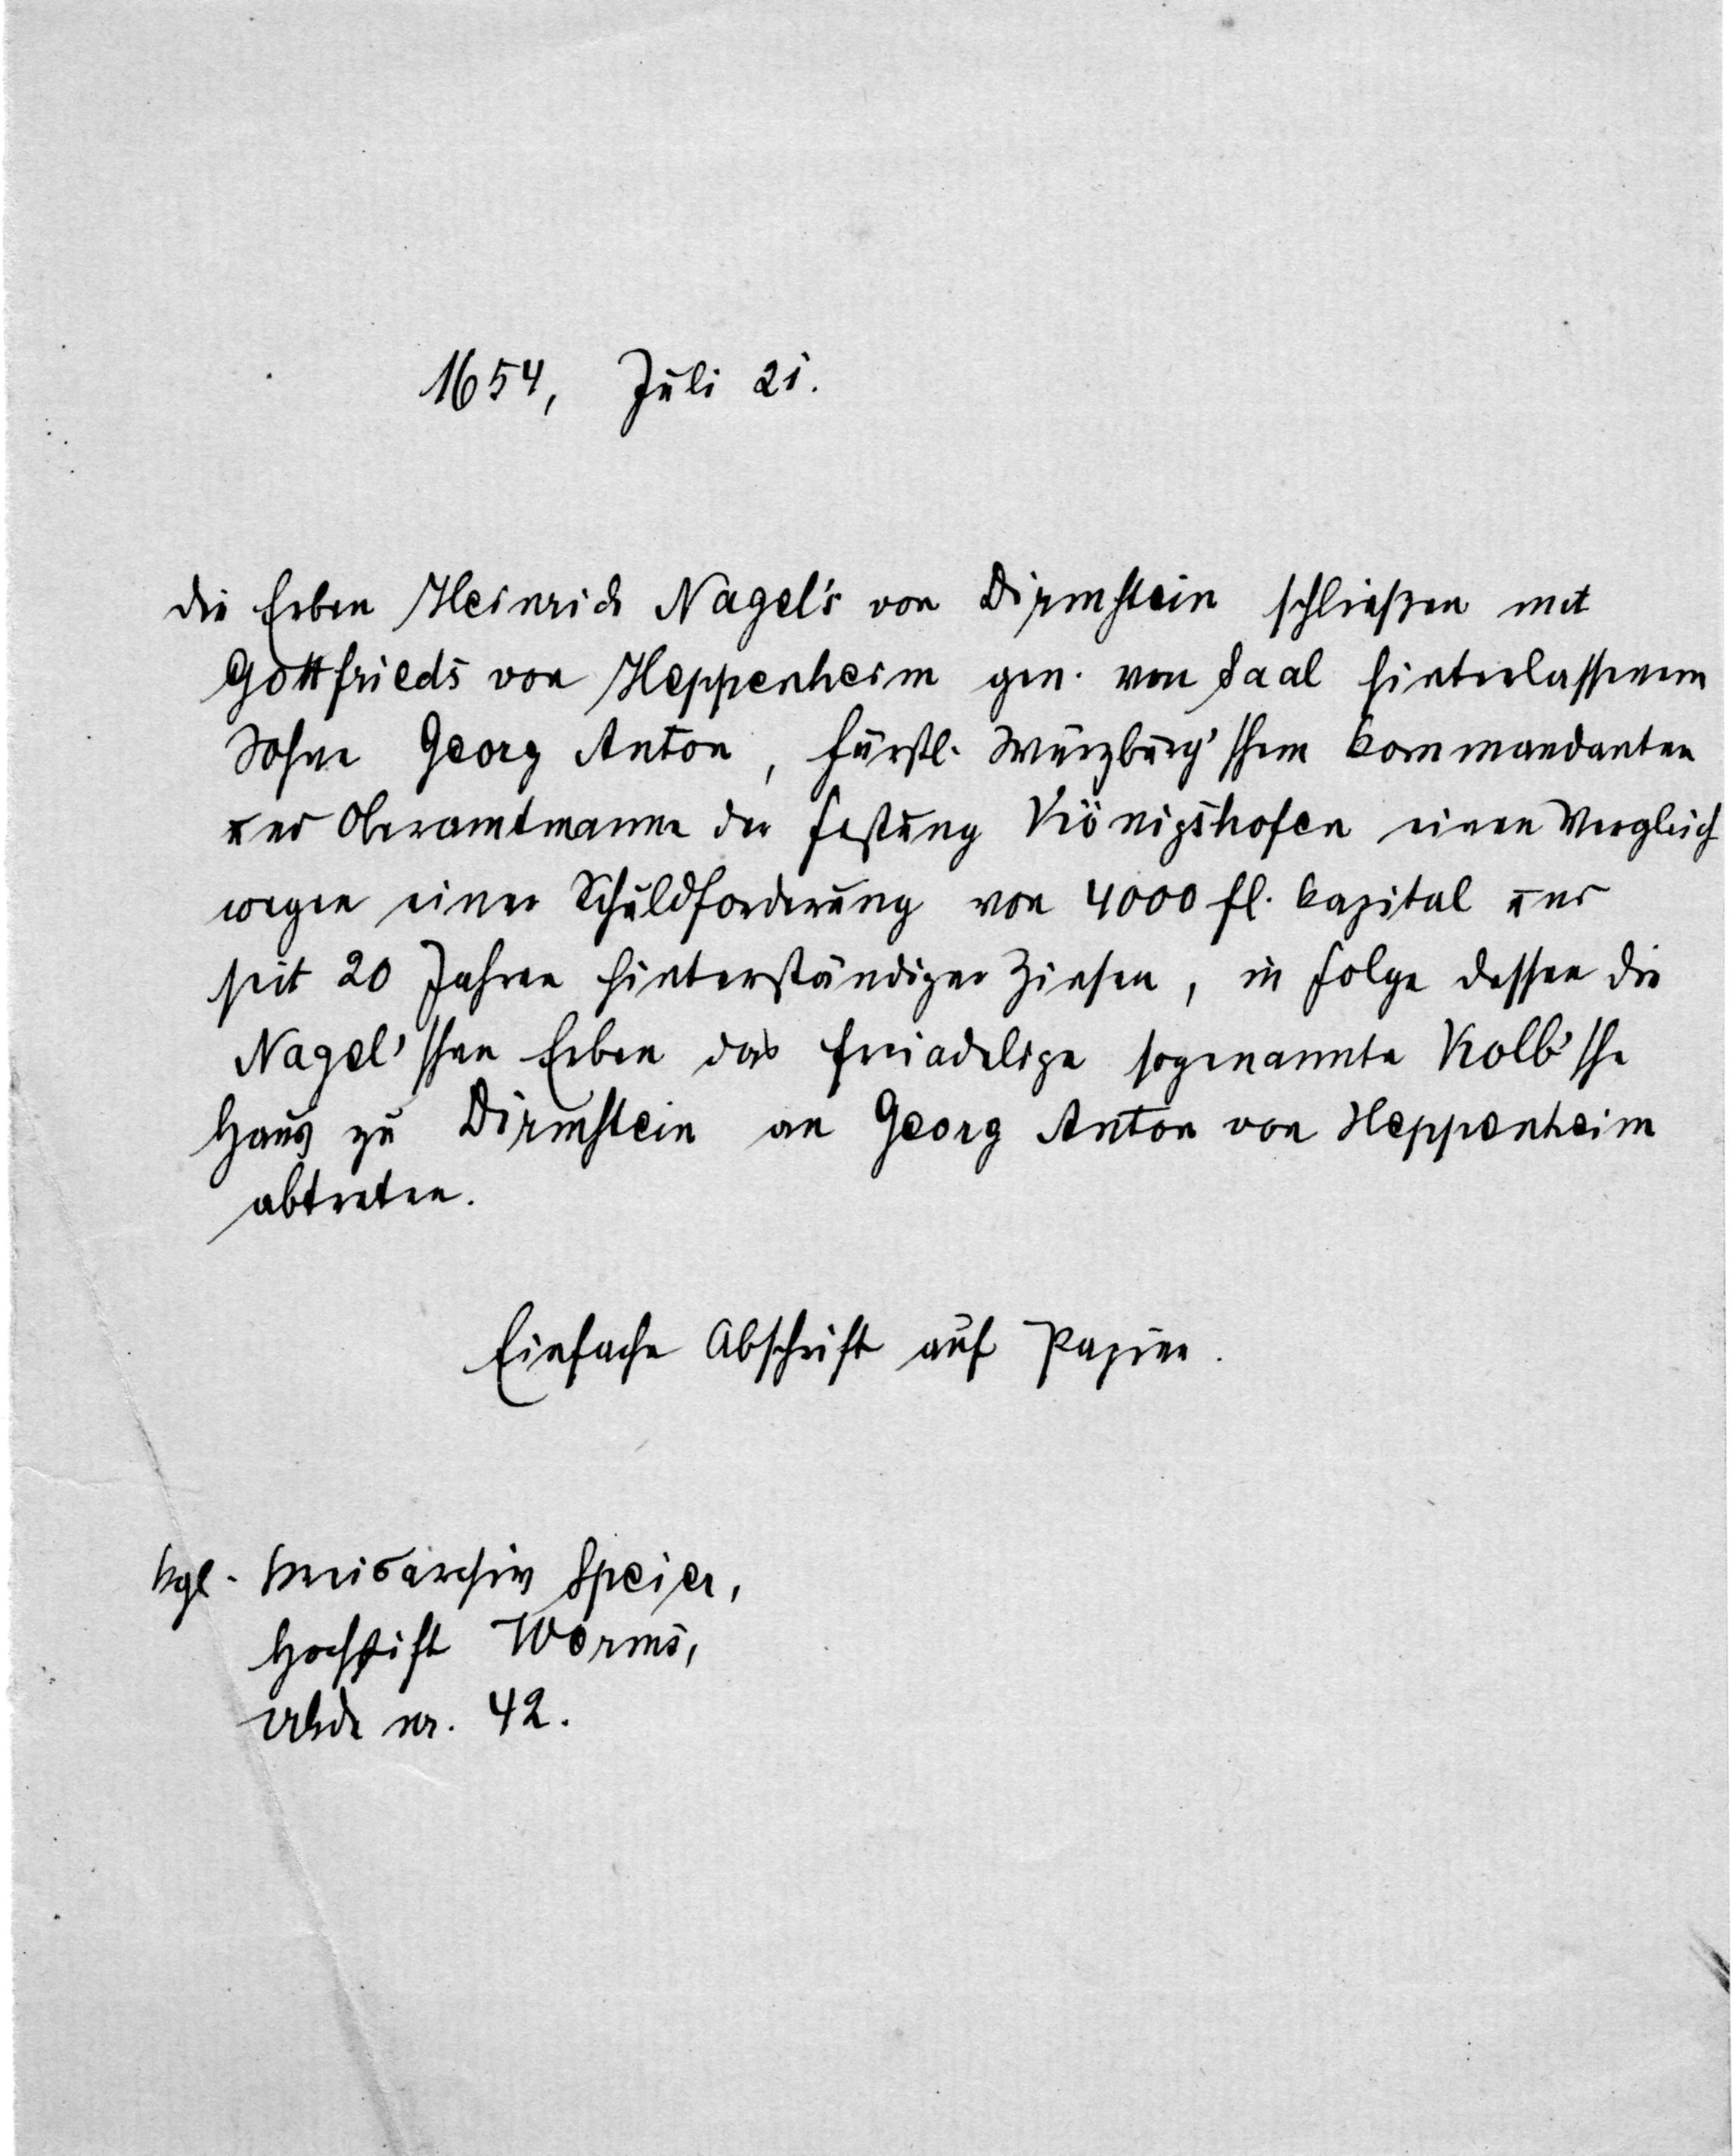 1654, Juli 21.
Die Erben Heinrich Nagel's von Dirmstein schließen mit
Gottfrieds von Heppenheim gen. von Saal hinterlassenem
Sohne Georg Anton, fürstl. Würzburg'schem Kommandanten
und Oberamtmanne der Festung Königshofen einen Vergleich
wegen einer Schuldforderung von 4000 fl. Kapital und
seit 20 Jahren hinterständiger Zinsen, in Folge dessen die
Nagel'schen Erben das freiadelige sogenannte Kolb'sche
Haus zu Dirmstein an Georg Anton von Heppenheim
abtreten.
Einfache Abschrift auf Papier.
Kgl. Kreisarchiv Speier,
Hochstift Worms,
Urkde nr. 42.